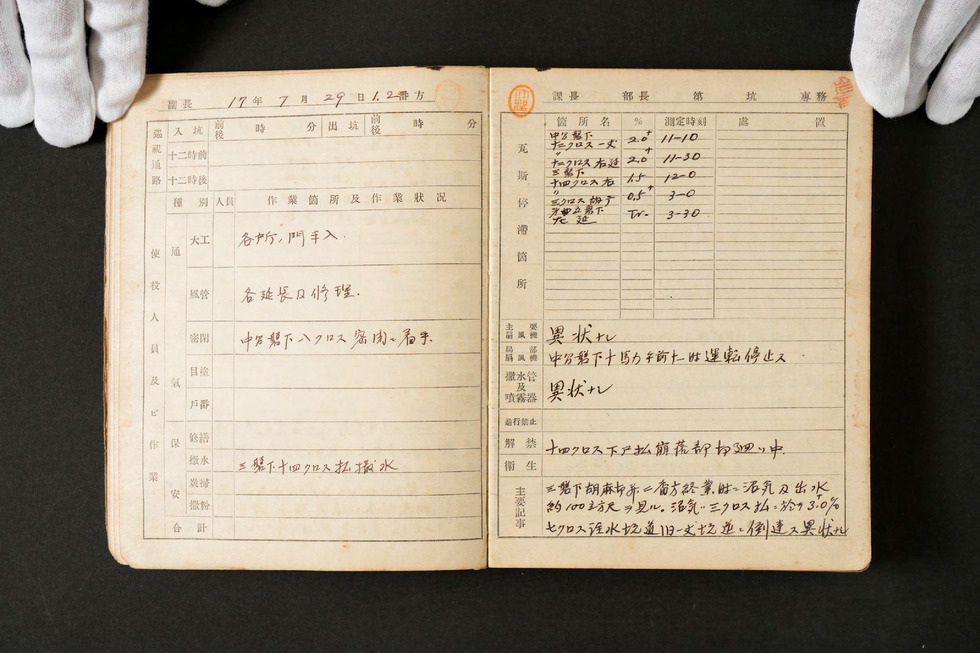 副長 17年7月29日1.2番方
巡視通路 入坑 前後 時 分 出坑 前後 時 分
十二時前
十二時後
種別 人員 作業箇所及作業状况
使役人員及ビ作業
通氣
大工 各所ノ門手入.
風管 各延長及修理.
密閉 中分盤下八クロス密閉ニ着手.
目塗
戸番
保安
修繕
撒水 三盤下十四クロス払撒水
炭掃
撒粉
合計
課長 部長 第 坑 専務
瓦斯停滞箇所
箇所名 % 測定時刻 處置
中分盤下
十二クロス一丈 2.0+ 11-10
〃
十二クロス右延 2.0+ 11-30
三盤下
十四クロス右 1.5 12-0
〃
三クロス 0.5+ 3-0
盤下
延 Tr. 3-30
主要扇風機 異状ナシ
局部扇風機 中分盤下十馬力午前七時運転停止ス
撒水管及噴霧器 異状ナシ
通行禁止
解禁 十四クロス下戸払崩落部切廻シ中.
衛生
主要記事
三盤下胡麻切昇二番方終業時ニ沼気及出水
約100立方尺ヲ見ル。沼気ハ三クロス払ニ於テ3.0+%
七クロス詮水坑道旧一丈坑道ニ倒達ス異状ナシ